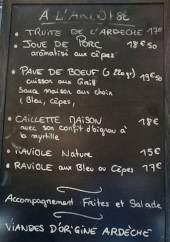 A L'ARDOISE
• TRUITE DE L'ARDECHE 17€
• JOUE DE PORC 18€50
aromatisé aux cèpes
• PAVE DE BOEUF (2 19€50
cuisson aux Grill
Sauce maison aux choix
(Bleu, Cèpes,
• CAILLETTE MAISON 18€
avec son confit d'oignon à
la myrtille
• RAVIOLE Nature 15€
• RAVIOLE aux Bleu ou Cèpes 17€
Accompagnement Frites et Salade
VIANDES D'ORIGINE ARDÈCHE